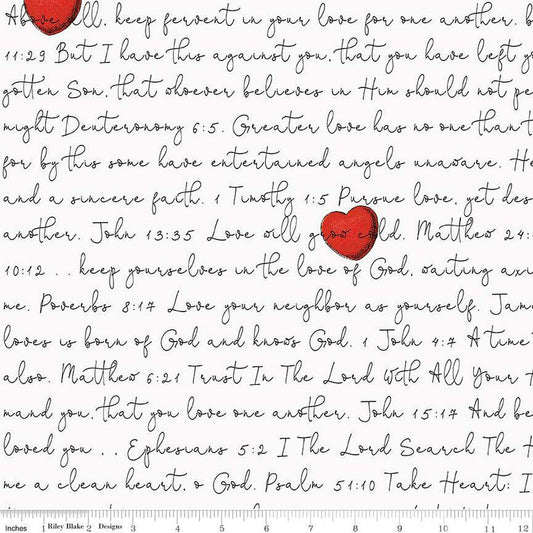 Above all, keep fervent in your love for one another. b
11:29 But I have this against you, that you have left y
gotten Son, that whoever believes in Him should not pe
might Deuteronomy 6:5. Greater love has no one than t
for by this some have entertained angels unaware. He
and a sincere faith. 1 Timothy 1:5 Pursue love, yet des
another. John 13:35 Love will grow cold. Matthew 24:
10:12 . . keep yourselves in the love of God, waiting axi
me. Poverbs 8:17 Love your neighbor as yourself. Jam
loves is born of God and knows God. 1 John 4:7 A time
also. Matthew 6:21 Trust In The Lord With All Your H
mand you, that you love one another. John 15:17 And be
loved you . . Ephesians 5:2 I The Lord Search The H
me a clean heart, o God. Psalm 51:10 Take Heart: I
Inches 1 Riley Blake Designs 2 3 4 5 6 7 8 9 10 11 12